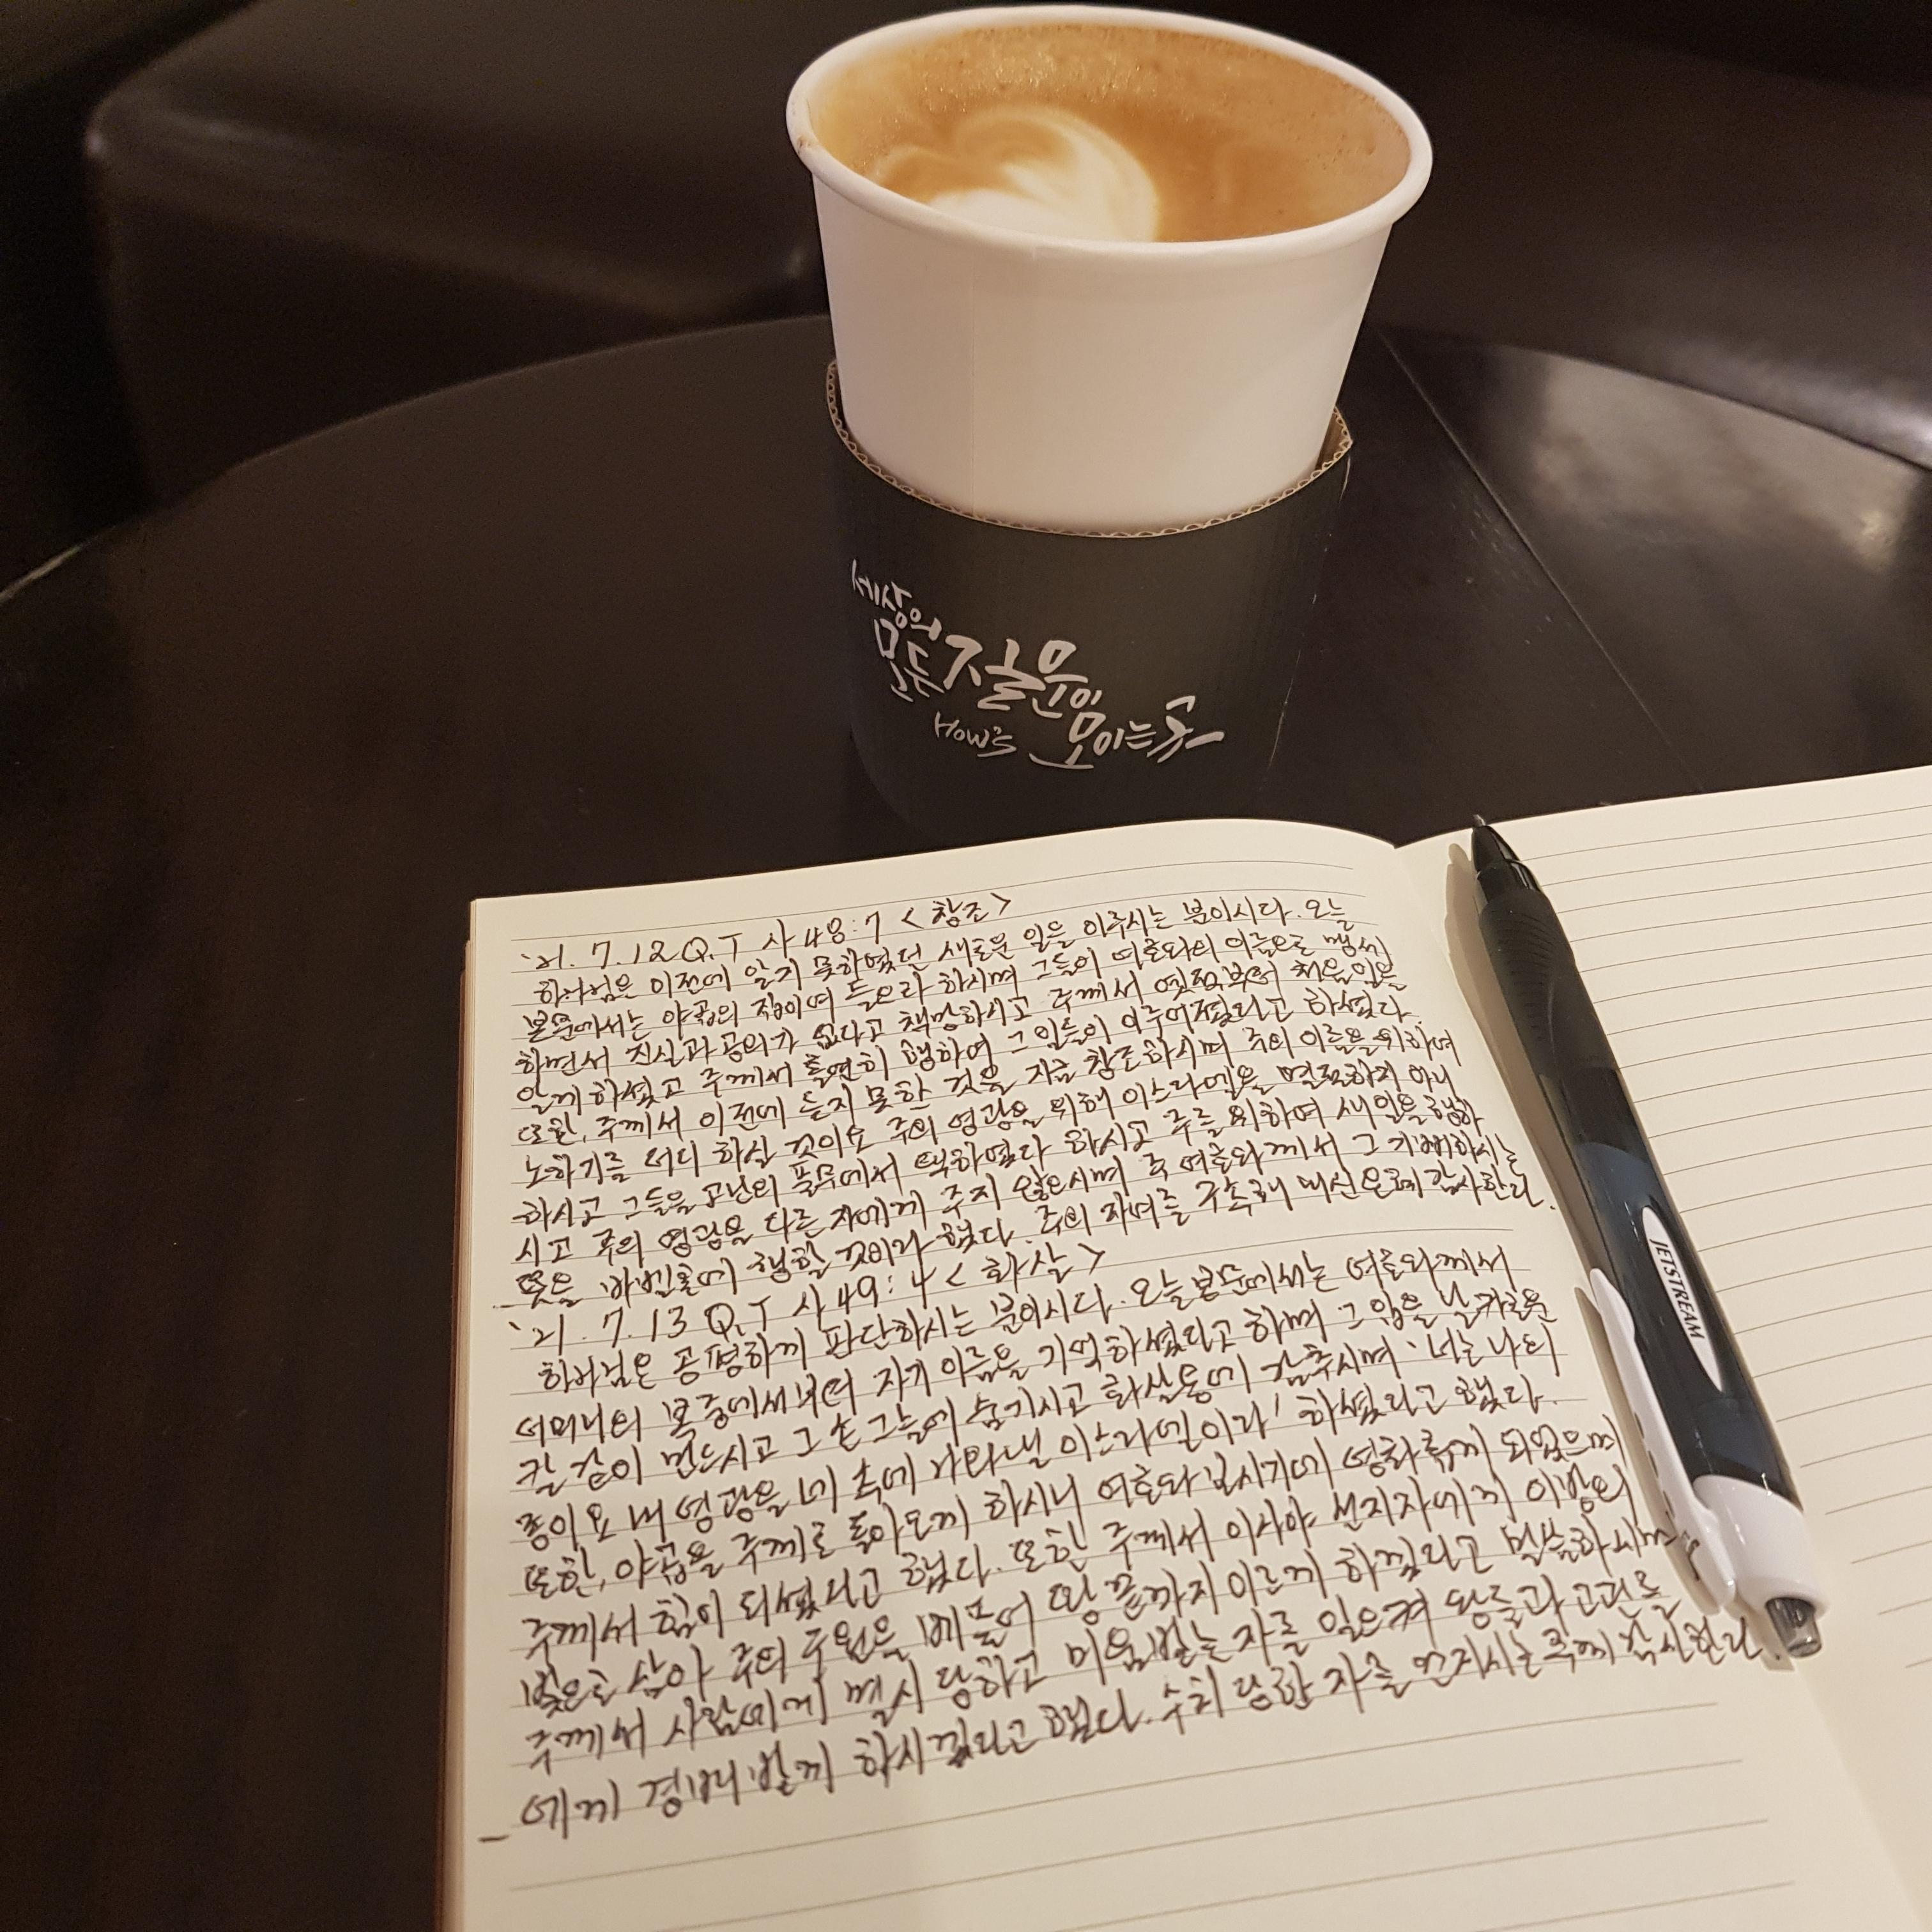 세상의
모든 젊음이
How's 모이는 곳
JETSTREAM
'21. 7. 12 Q.T 사 48:7 <창조>
하나님은 이전에 알지 못하였던 새로운 일을 이루시는 분이시다. 오늘
본문에서는 야곱의 집이여 들으라 하시며 그들이 여호와의 이름으로 맹세
하면서 진실과 공의가 없다고 책망하시고 주께서 옛적부터 처음 일을
알게 하셨고 주께서 홀연히 행하여 그 일들이 이루어졌다고 하셨다.
또한, 주께서 이전에 듣지 못한 것을 지금 창조하시며 주의 이름을 위하여
노하기를 더디 하실 것이요 주의 영광을 위해 이스라엘을 멸절하지 아니
하시고 그들을 고난의 풀무에서 택하였다 하시고 주를 위하여 새 일을 행하
시고 주의 영광을 다른 자에게 주지 않으시며 주 여호와께서 그 기뻐하시는
뜻을 바벨론에 행할 것이라 했다. 주의 자녀를 구속해 내신 은혜 감사한다.
'21. 7. 13 Q.T 사 49:4 <화살>
하나님은 공평하게 판단하시는 분이시다. 오늘 본문에서는 여호와께서
어머니의 복중에서부터 자기 이름을 기억하셨다고 하며 그 입을 날카로운
칼 같이 만드시고 그 손 그늘에 숨기시고 화살통에 감추시며 '너는 나의
종이요 내 영광을 네 속에 나타낼 이스라엘이라' 하셨다고 했다.
또한, 야곱을 주께로 돌아오게 하시니 여호와 보시기에 영화롭게 되었으며
주께서 힘이 되셨다고 했다. 또한 주께서 이사야 선지자에게 이방의
빛으로 삼아 주의 구원을 베풀어 땅 끝까지 이르게 하겠다고 말씀하시며
주께서 사람에게 멸시 당하고 미움받는 자를 일으켜 왕들과 고관들
에게 경배 받게 하시겠다고 했다. 수치 당한 자를 건지시는 주께 감사한다.